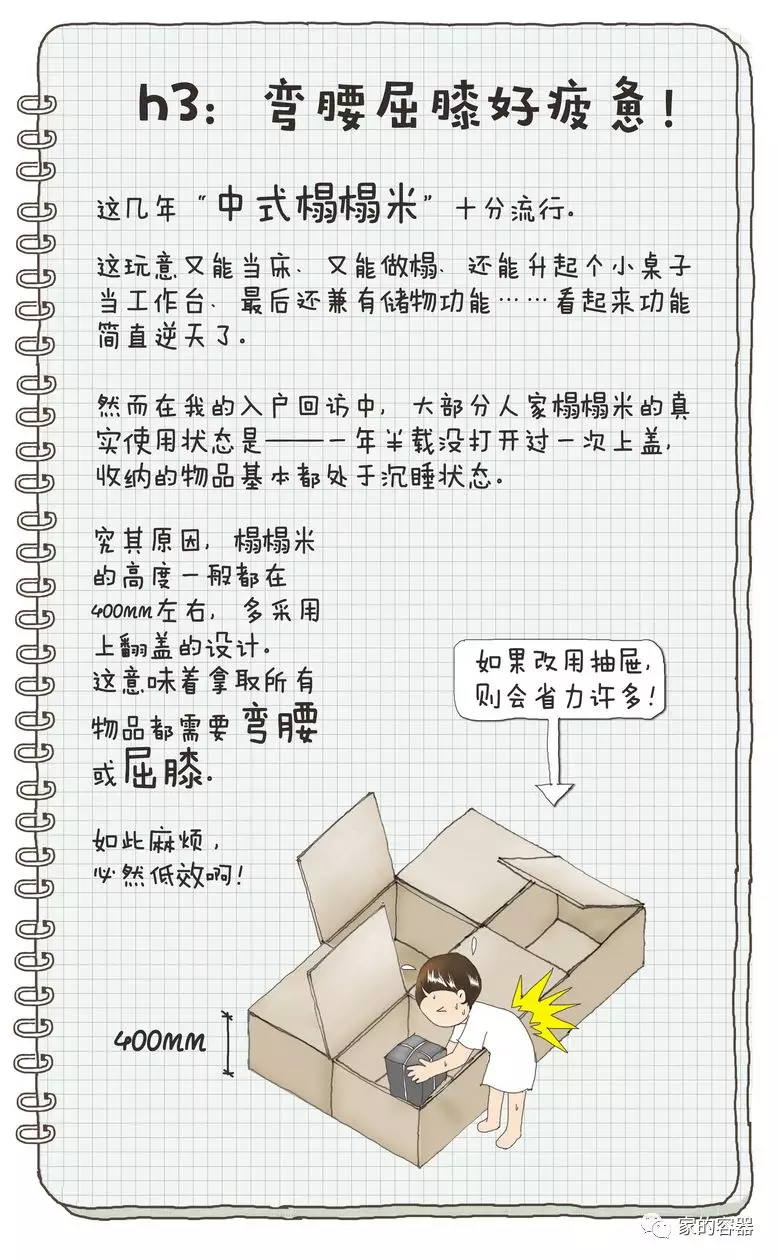 h3：弯腰屈膝好疲惫！
这几年“中式榻榻米”十分流行。
这玩意又能当床、又能做榻、还能升起个小桌子
当工作台、最后还兼有储物功能……看起来功能
简直逆天了。
然而在我的入户回访中，大部分人家榻榻米的真
实使用状态是——一年半载没打开过一次上盖，
收纳的物品基本都处于沉睡状态。
究其原因，榻榻米
的高度一般都在
400mm左右，多采用
上翻盖的设计。
这意味着拿取所有
物品都需要弯腰
或屈膝。
如此麻烦，
必然低效啊！
如果改用抽屉，
则会省力许多！
400mm
家的容器